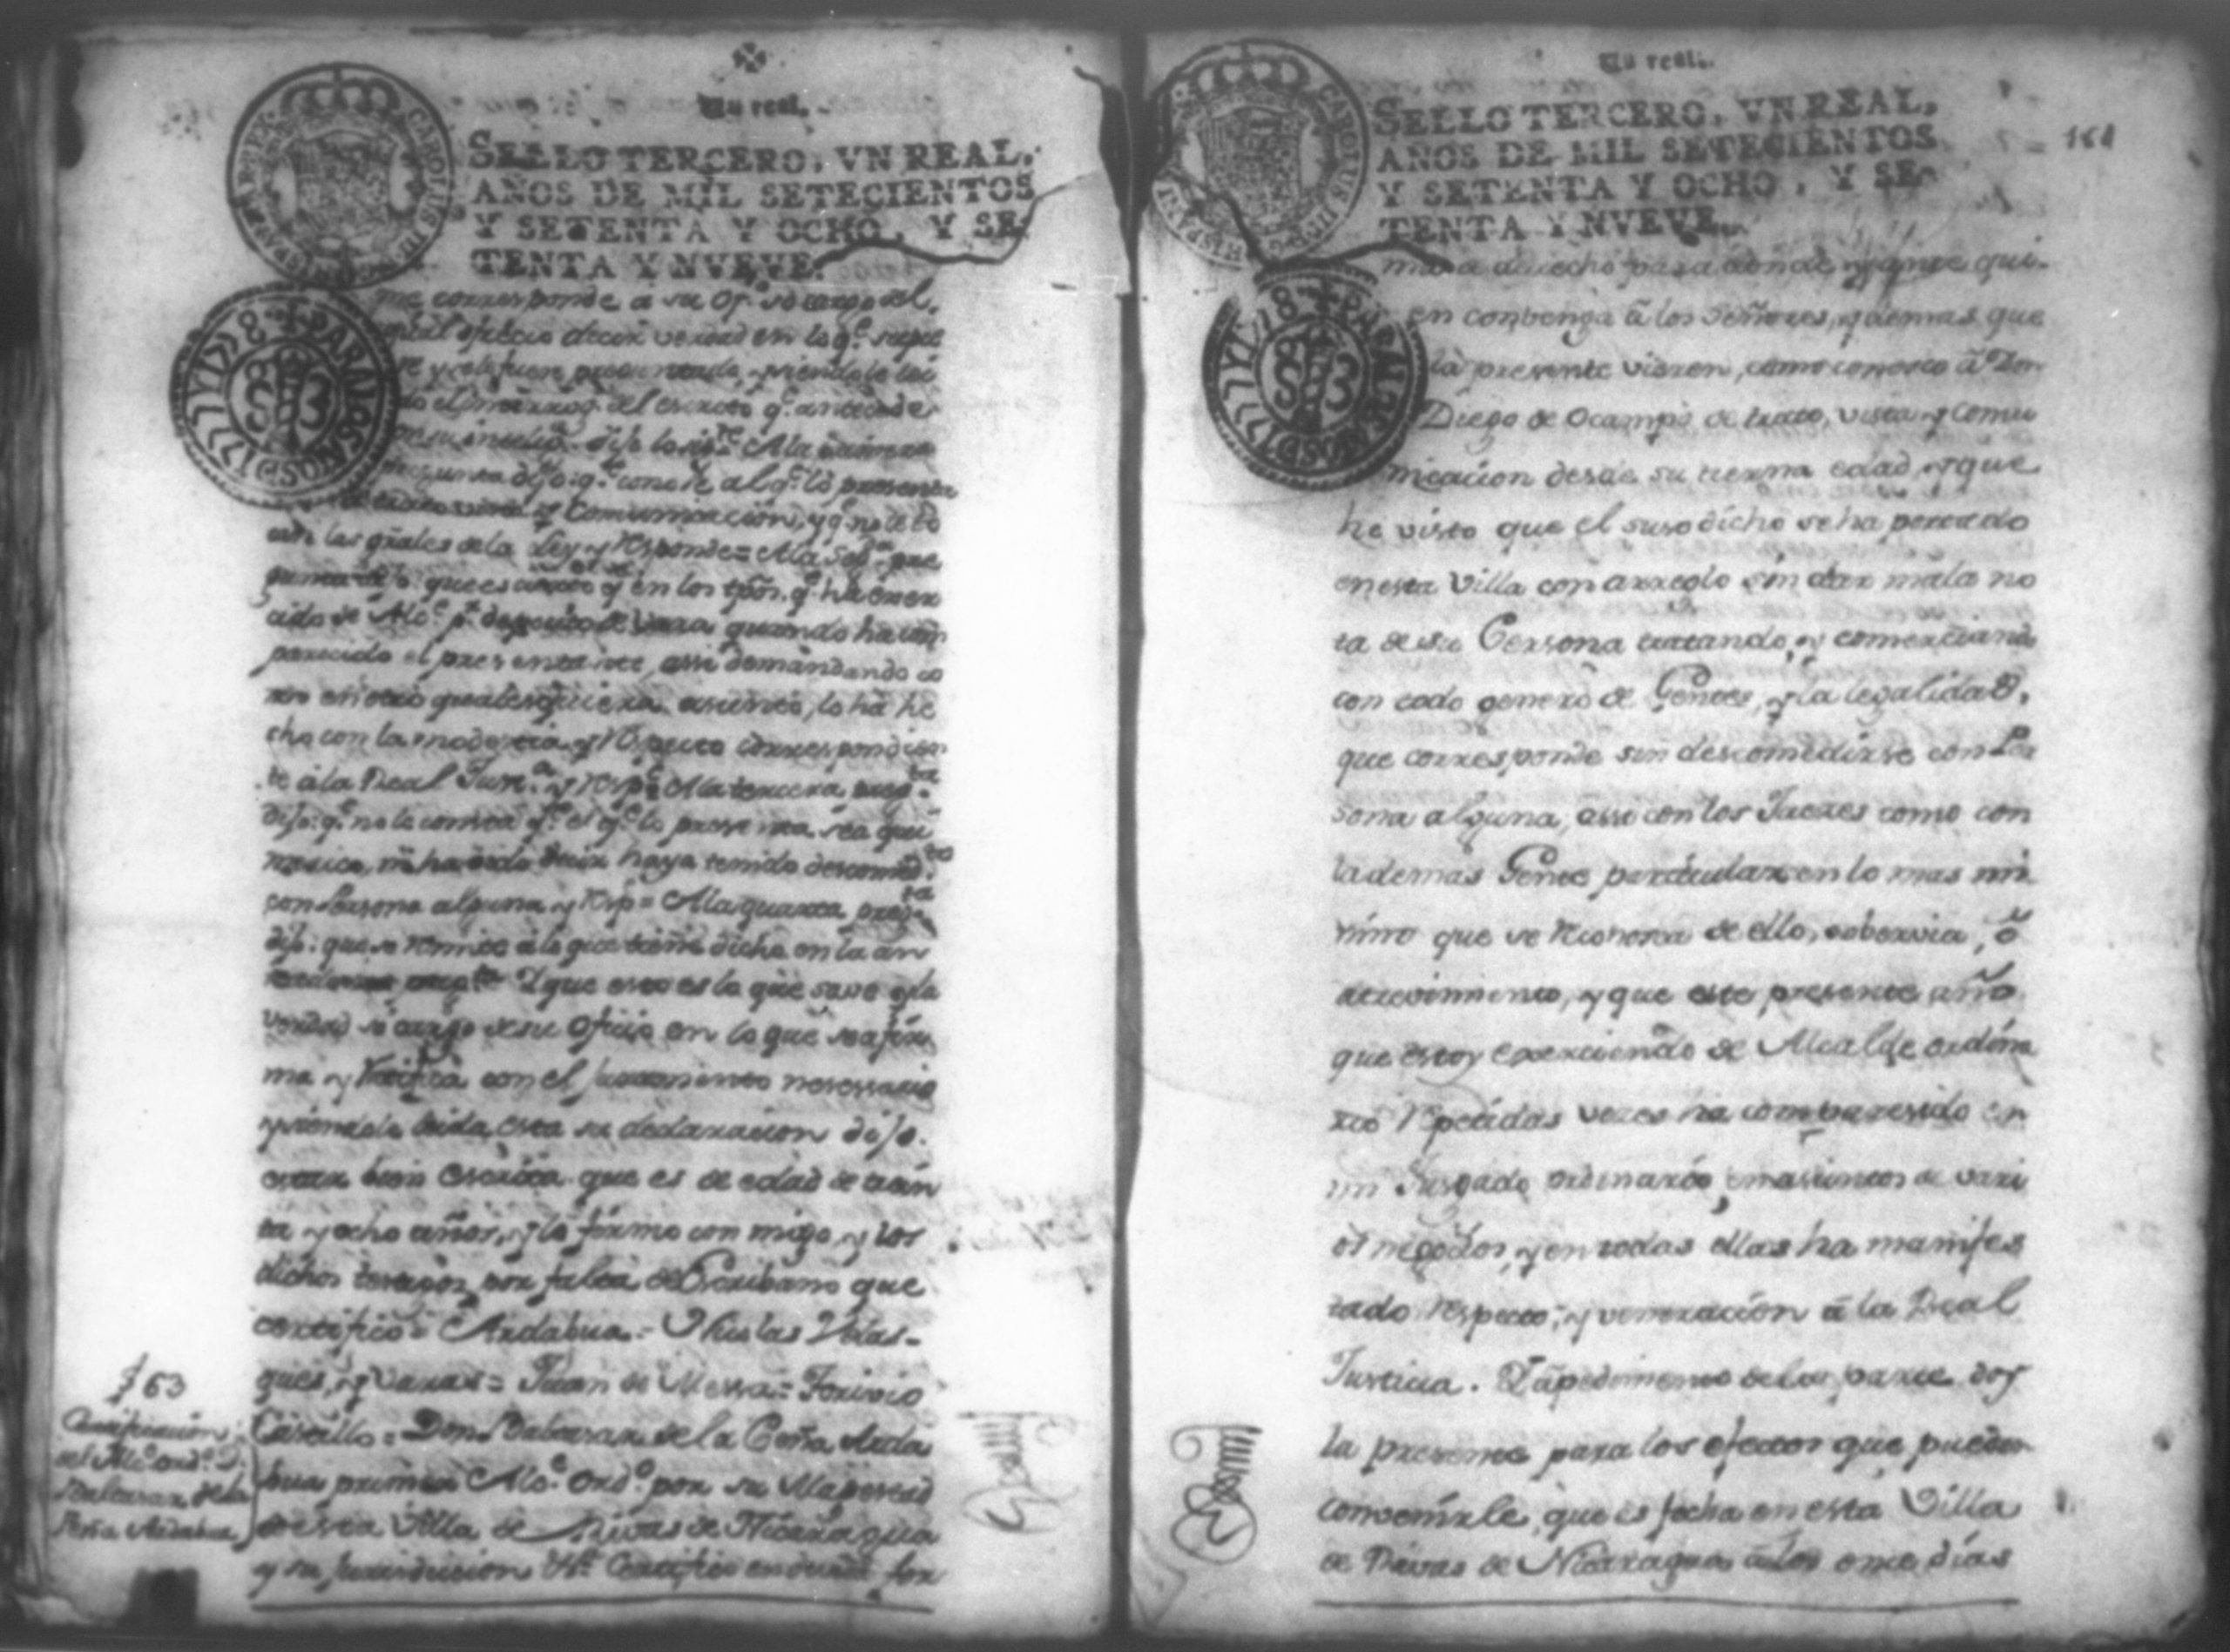 Un real.
SELLO TERCERO, VN REAL,
AÑOS DE MIL SETECIENTOS
Y SETENTA Y OCHO, Y SE-
TENTA Y NVEVE.
CAROLUS III
PARA LOS AÑOS D 1782 Y 1783
me corresponde a su ofº so cargo del
ofrecio decir verdad en lo qᵉ supie
re y le fuere preguntado, y siendole lei
do el interrog. del escrito qᵉ antecede
dijo lo sigᵗᵉ A la primera
pregunta dijo: qᵉ conose al qᵉ lo presenta
de trato vista y Comunicacion, y qᵉ no le to
can las grãles de la Ley y responde= A la segᵈᵃ pre
gunta dijo: que es cierto qᵉ en los tpõs. qᵉ ha exer
cido de Alcᵉ pʳ deposito de Vara, quando ha com
parecido el presentante, assi demandando co
mo en otros qualesquiera asuntos, lo ha he
cho con la modestia, y respecto correspondien
te à la Real Justᵃ y respᵉ A la tercera pregᵗᵃ
dijo: qᵉ no le consta qᵉ el qᵉ lo presenta sea qui
merico, ni ha oido decir haya tenido descomedᵗᵒ
con Persona alguna y resp= A la quarta pregᵗᵃ
dijo: que se remite à lo que tiene dicho en la an
tecedente pregᵗᵃ Y que esto es lo que save y la
verdad so cargo de su Oficio en lo que se afir
ma y ratifica con el juramento nesessario
y siendole leida esta su declaracion dijo.
estar bien escrita que es de edad de trein
ta y ocho años, y lo firmo con migo, y los
dichos testigos por falta de Escribano que
certifico= Ardabua.= Nicolas Velas-
ques, y Varas= Juan de Messa= Torivio
Castillo= Don Baltasar de la Peña Arda
bua primer Alcᵉ Ordᵒ por su Magestad
de esta Villa de Rivas de Nicaragua
y su Jurisdiccion Vᵃ Certifico en devida for
f 63
Certificacion
del Alcᵉ Ordᵒ D.
Baltasar de la
Peña Ardabua
Un real.
SELLO TERCERO, VN REAL,
AÑOS DE MIL SETECIENTOS
Y SETENTA Y OCHO, Y SE-
TENTA Y NVEVE.
161
CAROLUS III
HISPAN
ma a derecho para donde, y ante qui-
en convenga à los Señores, y demas que
la presente vieren, como conosco à Don
Diego de Ocampo de trato, vista y comu
nicacion desde su tierna edad, y que
he visto que el suso dicho se ha portado
en esta Villa con arreglo sin dar mala no
ta de su Persona tratando, y comerciando
con todo genero de Gentes, y la legalidad,
que corresponde sin descomedirse con Per
sona alguna, assi con los Jueses como con
la demas Gente particular en lo mas mi
nimo que se reconosca de ello, sobervia, ò
atrevimiento, y que este presente año
que estoy exerciendo de Alcalde ordina
rio repetidas veces ha comparesido en
mi Jusgado ordinario, en asuntos de vari
os negocios, y en todas ellas ha manifes
tado respecto, y veneracion à la Real
Justicia. Y a pedimento de la parte doy
la presente para los efectos que puedan
convenirle, que es fecha en esta Villa
de Rivas de Nicaragua à los once dias